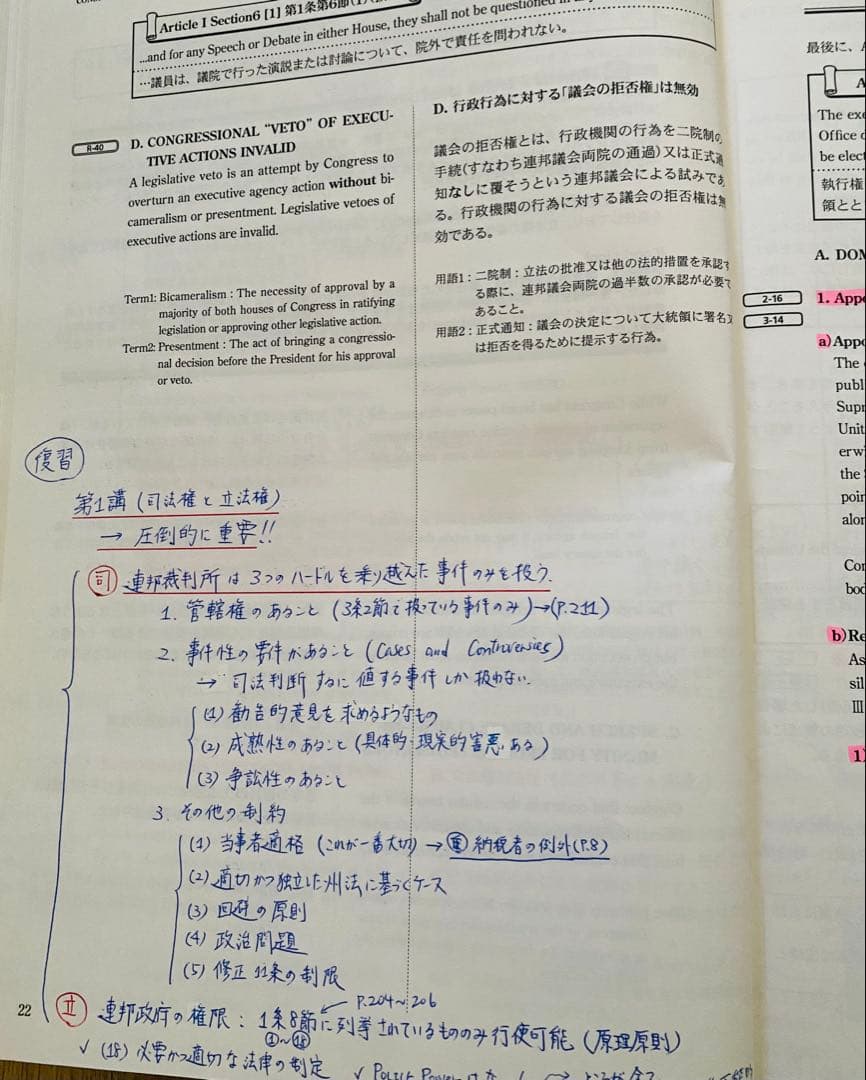 Article I Section6 [1] 第1条第6節
...and for any Speech or Debate in either House, they shall not be questioned in
…議員は、議院で行った演説または討論について、院外で責任を問われない。
R-40
D. CONGRESSIONAL “VETO” OF EXECU-
TIVE ACTIONS INVALID
A legislative veto is an attempt by Congress to
overturn an executive agency action without bi-
cameralism or presentment. Legislative vetoes of
executive actions are invalid.
Term1: Bicameralism : The necessity of approval by a
majority of both houses of Congress in ratifying
legislation or approving other legislative action.
Term2: Presentment : The act of bringing a congressio-
nal decision before the President for his approval
or veto.
D. 行政行為に対する「議会の拒否権」は無効
議会の拒否権とは、行政機関の行為を二院制の
手続(すなわち連邦議会両院の通過)又は正式通
知なしに覆そうという連邦議会による試みであ
る。行政機関の行為に対する議会の拒否権は無
効である。
用語1：二院制：立法の批准又は他の法的措置を承認す
る際に、連邦議会両院の過半数の承認が必要で
あること。
用語2：正式通知：議会の決定について大統領に署名又
は拒否を得るために提示する行為。
復習
第1講 (司法権と立法権)
→ 圧倒的に重要!!
司 連邦裁判所は3つのハードルを乗り越えた事件のみを扱う.
1. 管轄権のあること (3条2節で扱っている事件のみ)→(P.211)
2. 事件性の要件があること (Cases and Controversies)
→ 司法判断するに値する事件しか扱わない.
(1) 勧告的意見を求めるようなもの
(2) 成熟性のあること (具体的・現実的害悪ある)
(3) 争訟性のあること
3. その他の制約
(1) 当事者適格 (これが一番大切) → 重 納税者の例外(P.8)
(2) 適切かつ独立した州法に基づくケース
(3) 回避の原則
(4) 政治問題
(5) 修正11条の制限
P.204~206
立 連邦政府の権限: 1条8節に列挙されているもののみ行使可能 (原理原則)
①~⑱
✓ (18) 必要かつ適切な法律の制定
✓ Police Power
22
最後に、
The exe
Office o
be elect
執行権
領とと
A. DOM
2-16
3-14
1. Appo
a) Appo
The
publ
Supr
Unit
erwi
the
poin
alon
Con
bod
b) Re
As
sil
III
1)